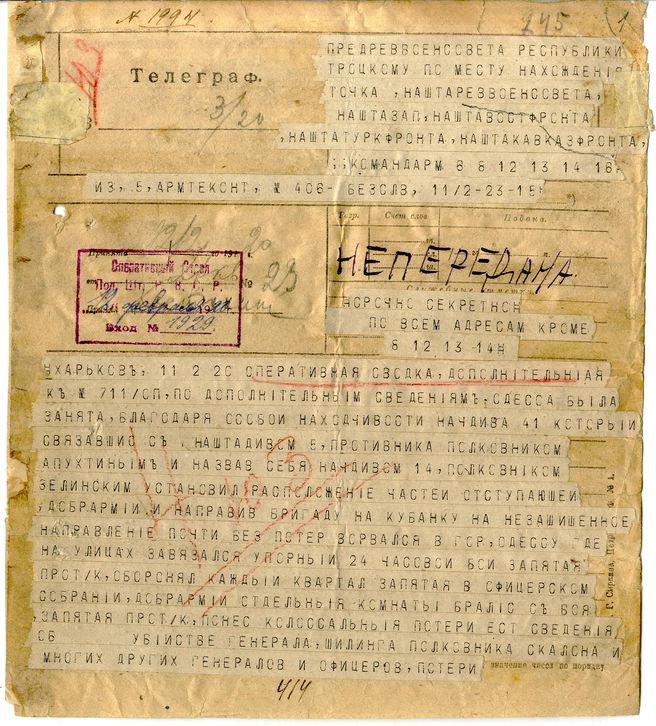 А 1994
245
(1
Телеграф.
3/20
ПРЕДРЕВВОЕНСОВЕТА РЕСПУБЛИКИ
ТРОЦКОМУ ПО МЕСТУ НАХОЖДЕНІЯ
ТОЧКА ,НАШТАРЕВВОЕНСОВЕТА,
НАШТАЗАП,НАШТАВОСТФРОНТА
,НАШТАТУРКФРОНТА,НАШТАКАВКАЗФРОНТА,
КОМАНДАРМ 6 8 12 13 14 16
ИЗ,.5,АРМТЕКОНТ, № 406- БЕЗСЛВ, 11/2-23-15
Разр. Счет слов Подана.
НЕПЕРЕДАНА
Служебныя отметки
Принята
23
Оперативный Отдел
Пол. Шт. Р. В. С. Р.
12 февраля
Вход № 1929.
НОРОЧНО СЕКРЕТНОН
ПО ВСЕМ АДРЕСАМ КРОМЕ
8 12 13 14Н
ЧХАРЬКОВЪ, 11 2 2С ОПЕРАТИВНАЯ СВОДКА,ДОПОЛНИТЕЛЬНІАЯ
КЪ № 711/ОП,ПО ДОПОЛНИТЕЛЬНЫМ СВЕДЕНІЯМЪ,ОДЕССА БЫЛА
ЗАНЯТА,БЛАГОДАРЯ ОСОБОИ НАХОДЧИВОСТИ НАЧДИВА 41 КОТОРЫИ
СВЯЗАВШИС СЪ НАШТАДИВОМ 5,ПРОТИВНИКА ПОЛКОВНИКОМ
АПУХТИНЫМЪ И НАЗВАВ СЕБЯ НАЧДИВОМ 14,ПОЛКОВНІКОМ
ЗЕЛИНСКИМ УСТАНОВИЛ РАСПОЛОЖЕНІЕ ЧАСТЕИ ОТСТУПАЮШЕИ
,ДОБРАРМІИ И НАПРАВИВ БРИГАДУ НА КУБАНКУ НА НЕЗАШИШЕННОЕ
НАПРАВЛЕНІЕ ПОЧТИ БЕЗ ПОТЕР ВОРВАЛСЯ В ГОР,ОДЕССУ ГДЕ
НА УЛИЦАХ ЗАВЯЗАЛСЯ УПОРНЫИ 24 ЧАСОВОИ БОИ ЗАПЯТАЯ
ПРОТ/К,ОБОРОНЯЛ КАЖДЫИ КВАРТАЛ ЗАПЯТАЯ В ОФИЦЕРСКОМ
СОБРАНІИ,ДОБРАРМІИ ОТДЕЛЬНЫЯ КОМНАТЫ БРАЛІС СЪ БОЯ
,ЗАПЯТАЯ ПРОТ/К,ПОНЕС КОЛОССАЛЬНЫЯ ПОТЕРИ ЕСТ СВЕДЕНІЯ
ОБ УБІИСТВЕ ГЕНЕРАЛА,ШИЛИНГА ПОЛКОВНИКА СКАЛОНА И
МНОГИХ ДРУГИХ ГЕНЕРАЛОВ И ОФИЦЕРОВ,ПОТЕРИ
значение чисел по порядку
4/4